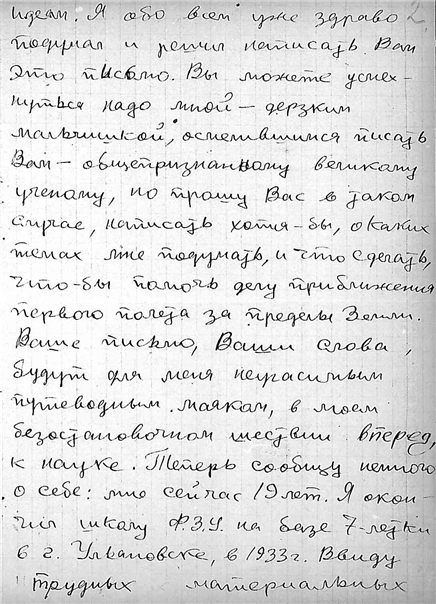 идеал. Я обо всем уже здраво 2
подумал и решил написать Вам
это письмо. Вы можете усмех-
нуться надо мной – дерзким
мальчишкой, осмелившимся писать
Вам – общепризнанному великому
ученому, но прошу Вас в таком
случае, написать хотя-бы, о каких
темах мне подумать, и что сделать,
что-бы помочь делу приближения
первого полета за пределы Земли.
Ваше письмо, Ваши слова,
будут для меня неугасимым
путеводным маяком, в моем
безостановочном шествии вперед,
к науке. Теперь сообщу немного
о себе: мне сейчас 19 лет. Я окон-
чил школу Ф.З.У. на базе 7-летки
в г. Ульановске, в 1933 г. Ввиду
трудных материальных